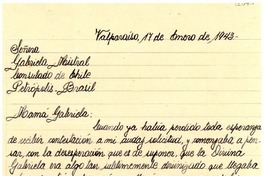 Valparaíso, 17 de Enero de, 1943.-
Señora
Gabriela Mistral
Consulado de Chile
Petrópolis, Brasil
Mamá Gabriela:
Cuando ya había perdido toda esperanza
de recibir contestación a mi audaz solicitud, y comenzaba a pen-
sar, con la desesperación que es de suponer, que la Divina
Gabriela era algo tan sublimemente divinizado que llegaba